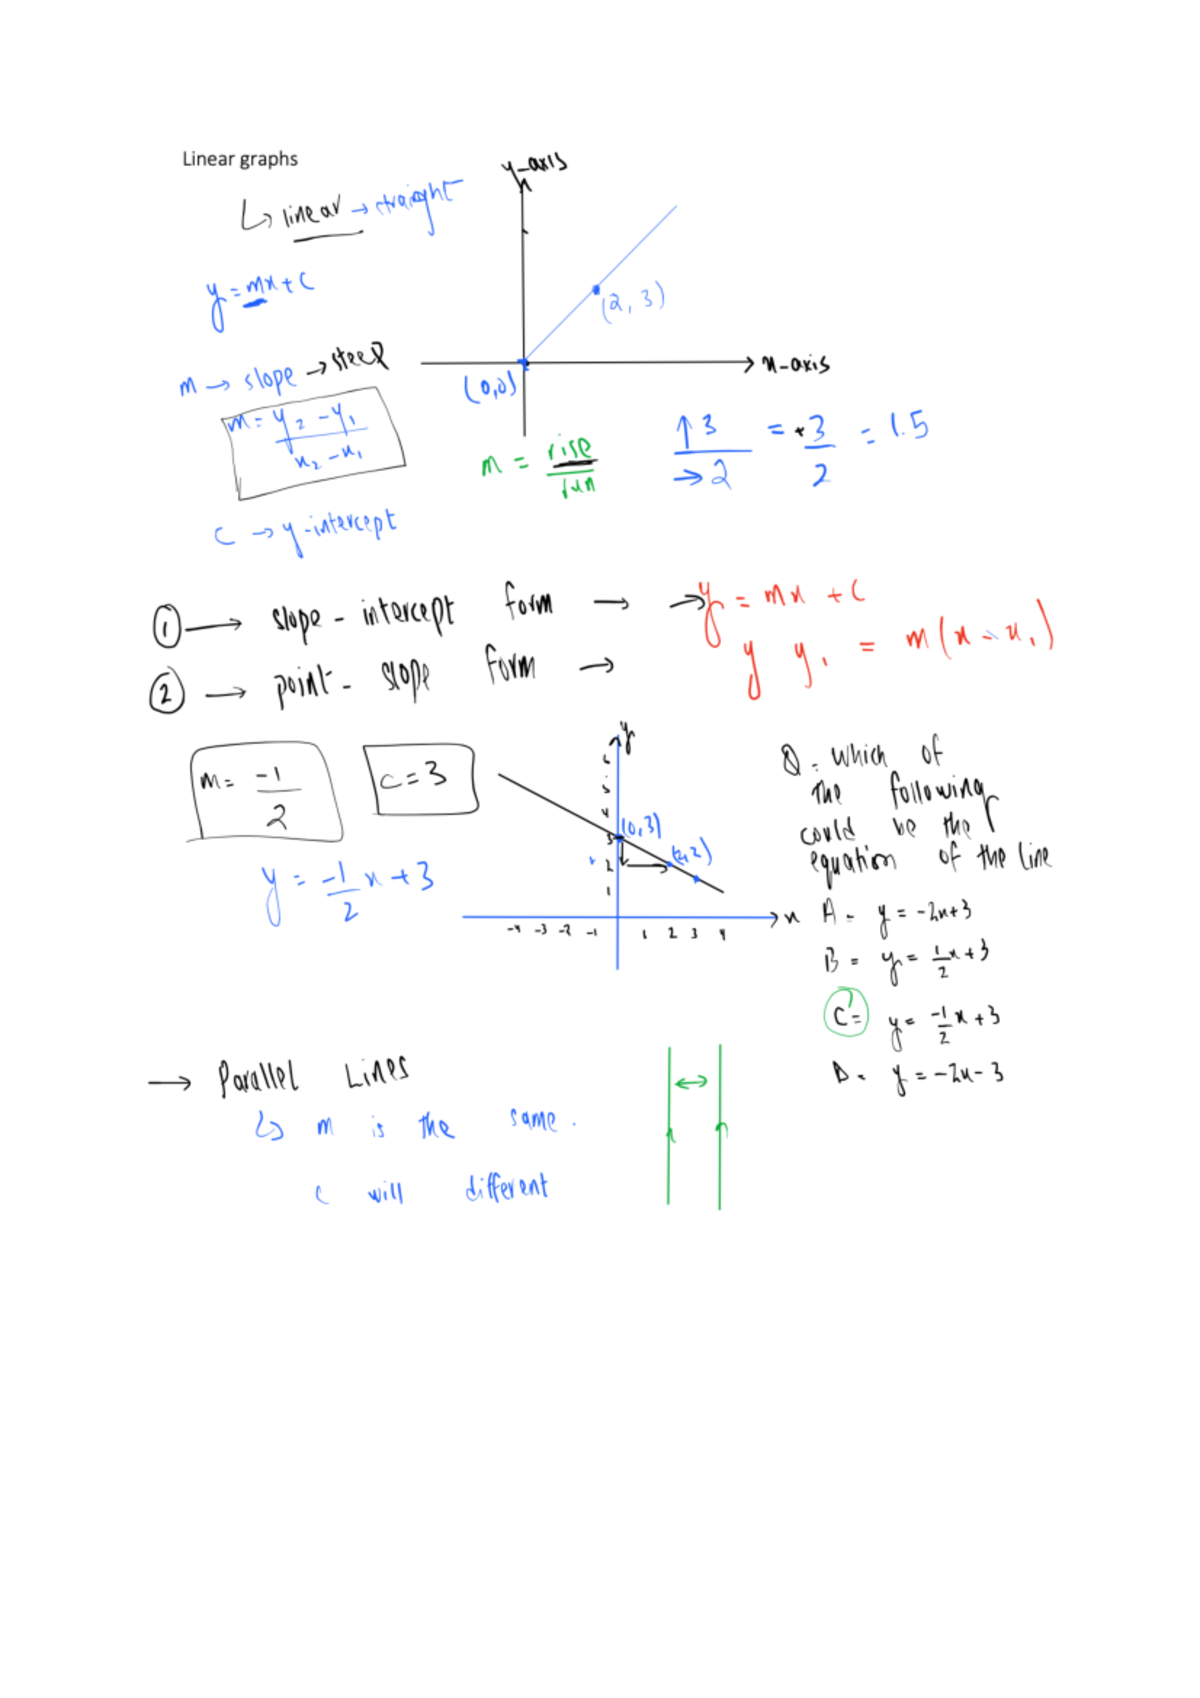 Linear graphs
↳ linear → straight
y-axis
y = mx + c
(2, 3)
m → slope → steep
x-axis
(0,0)
m = y₂ - y₁
x₂ - x₁
m = rise
run
↑3 = +3 = 1.5
→2 2
c → y-intercept
① → slope - intercept form → → y = mx + c
② → point - slope form → y y₁ = m(x - x₁)
m = -1
2
c = 3
y = -1/2 x + 3
y
6
5
4
3
2
1
(0,3)
(2,2)
-4 -3 -2 -1 1 2 3 4
x
Q. Which of
the following
could be the
equation of the line
A - y = -2x+3
B = y = 1/2 x + 3
C = y = -1/2 x + 3
D. y = -2x - 3
→ Parallel Lines
↳ m is the same.
c will different